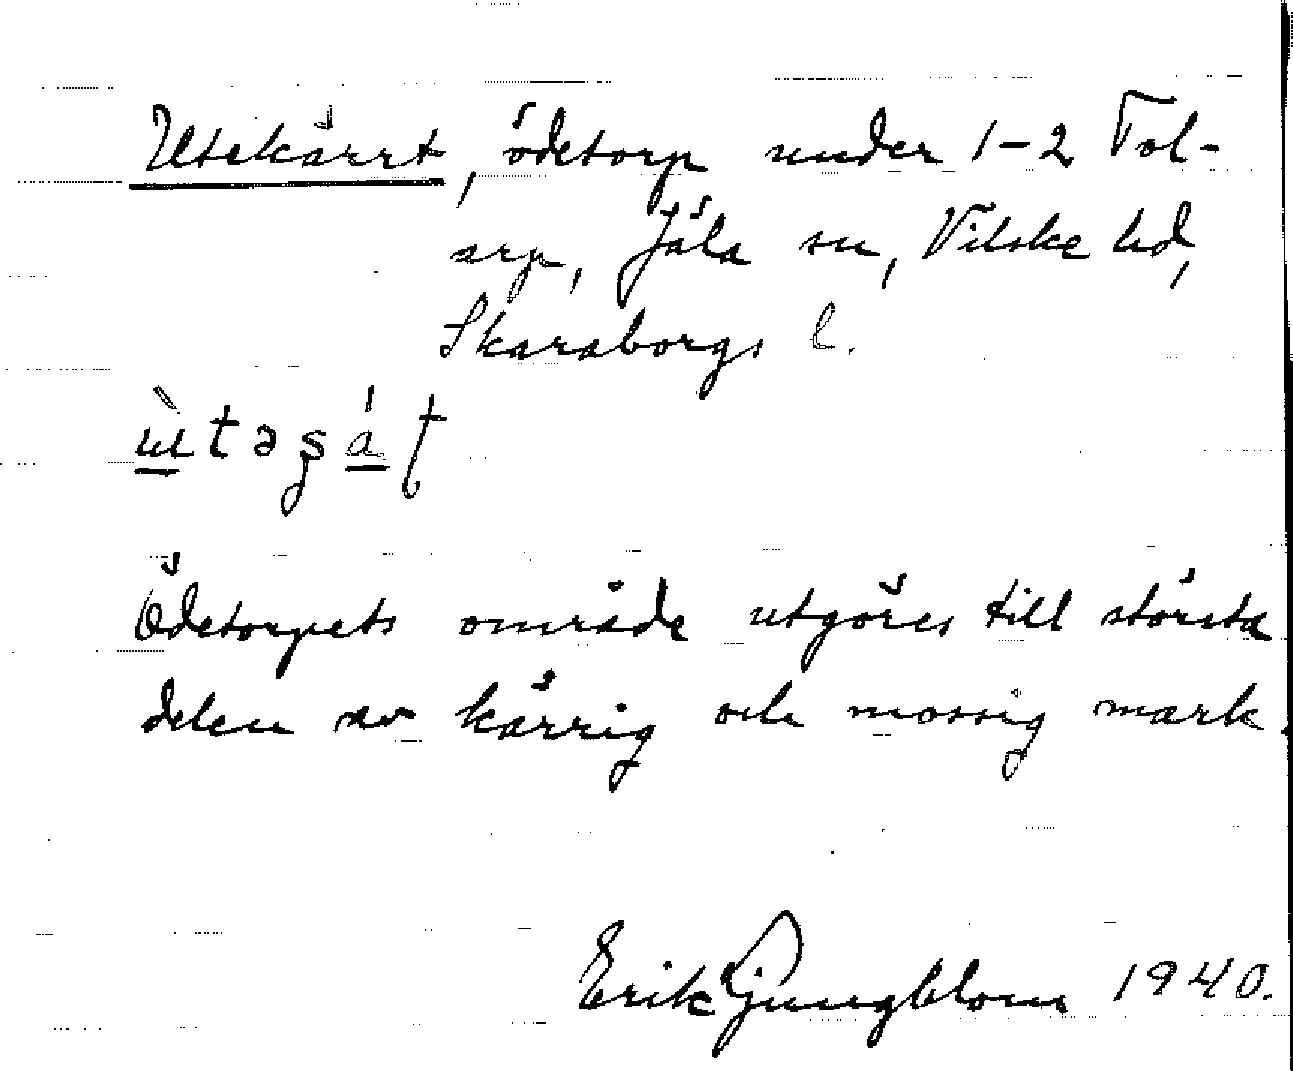 Utekärrt, ödetorp under 1-2 Tol-
arp, Jäla sn, Vilske hd,
Skaraborgs l.
Ödetorpets område utgöres till största
delen av kärrig och mossig mark.
Erik Ljungblom 1940.